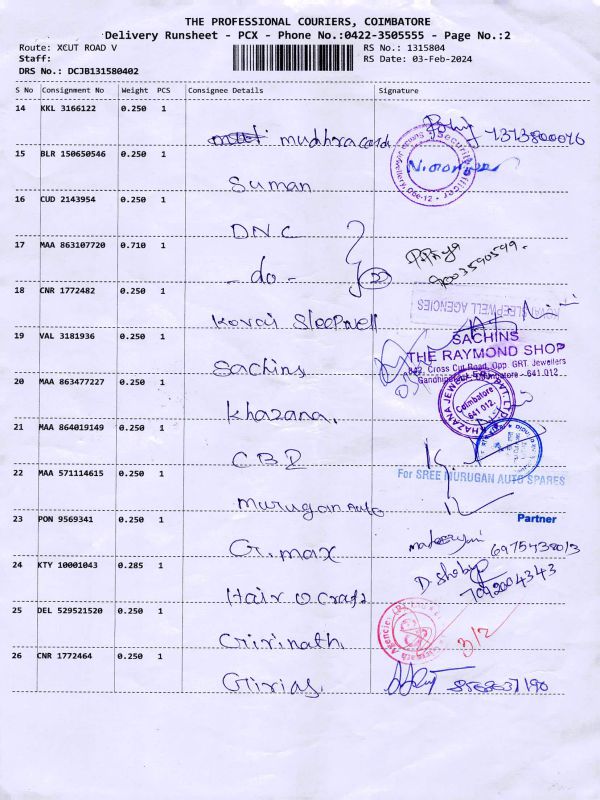 THE PROFESSIONAL COURIERS, COIMBATORE
Delivery Runsheet - PCX - Phone No.:0422-3505555 - Page No.:2
Route: XCUT ROAD V RS No.: 1315804
Staff: RS Date: 03-Feb-2024
DRS No.: DCJB131580402
S No Consignment No Weight PCS Consignee Details Signature
14 KKL 3166122 0.250 1
mudhra card
15 BLR 150650546 0.250 1
Security Officer
Suman
16 CUD 2143954 0.250 1
DNC
17 MAA 863107720 0.710 1
- do -
18 CNR 1772482 0.250 1
SLEEPWELL AGENCIES
Kovai Sleepwell
19 VAL 3181936 0.250 1
SACHINS
THE RAYMOND SHOP
842, Cross Cut Road, Opp. GRT. Jewellers
Sachins
20 MAA 863477227 0.250 1
KHAZANA JEWELLERY PVT. LTD.
Coimbatore
641 012.
Khazana.
21 MAA 864019149 0.250 1
CBI
22 MAA 571114615 0.250 1
For SREE MURUGAN AUTO SPARES
Murugan Auto
23 PON 9569341 0.250 1
Partner
G.max
24 KTY 10001043 0.285 1
7092004343
Hair O Craft
25 DEL 529521520 0.250 1
3/2
Girinath
26 CNR 1772464 0.250 1
Girias